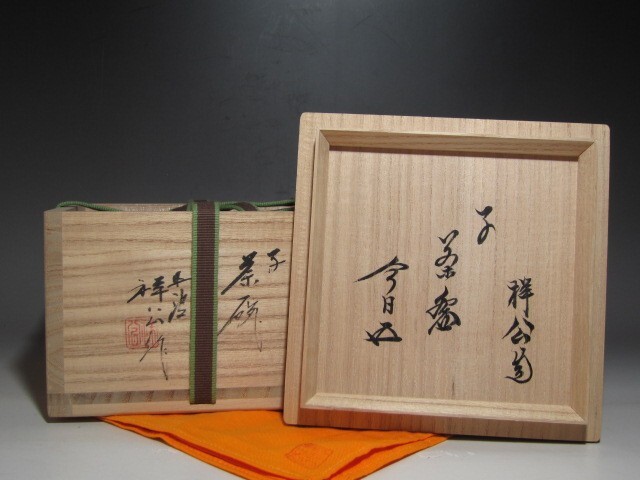 子
茶碗
兵治
祥公作
祥公造
子
茶盌
今日